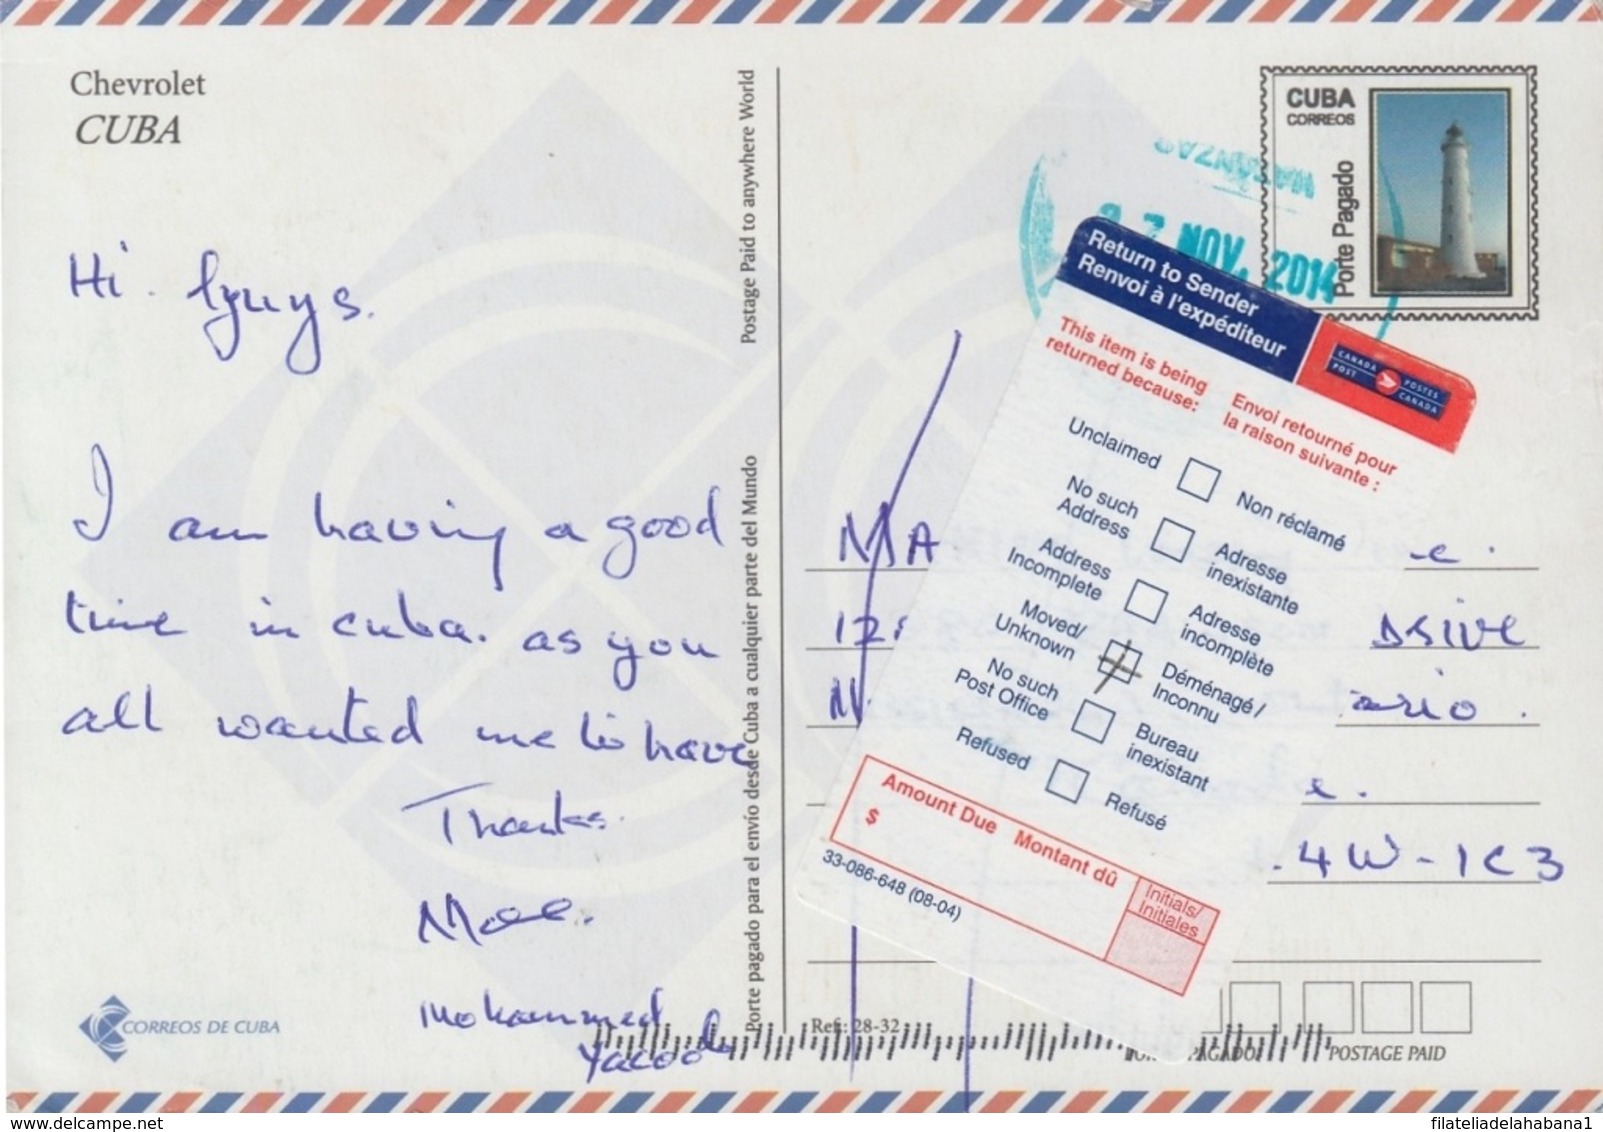 Chevrolet
CUBA
Hi guys.
I am having a good
time in cuba. as you
all wanted me to have
Thanks.
Moe.
Mohammed
Yacoob
CORREOS DE CUBA
Postage Paid to anywhere World
Porte pagado para el envío desde Cuba a cualquier parte del Mundo
CUBA
CORREOS
Porte Pagado
MATANZAS
27 NOV. 2014
Return to Sender
Renvoi à l'expéditeur
CANADA POST
POSTES CANADA
This item is being
returned because:
Envoi retourné pour
la raison suivante :
Unclaimed
Non réclamé
No such
Address
Adresse
inexistante
Address
Incomplete
Adresse
incomplète
Moved/
Unknown
Déménagé/
Inconnu
No such
Post Office
Bureau
inexistant
Refused
Refusé
Amount Due Montant dû
$
Initials/
Initiales
33-086-648 (08-04)
MA e.
Drive
N. tario.
e.
.4W-1C3
Ref.: 28-32
PAGADO
POSTAGE PAID
filateliadelahabana1